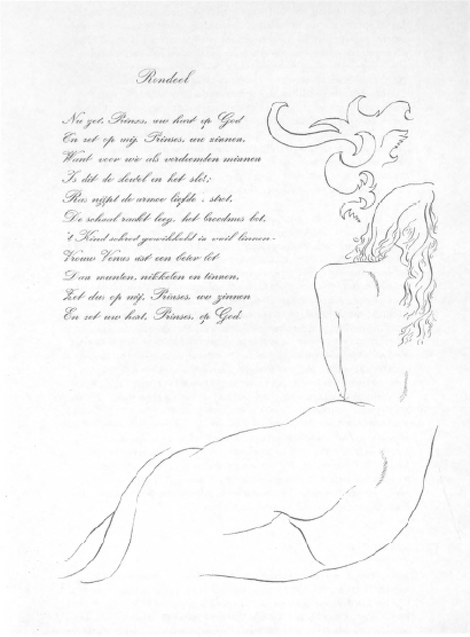 Rondeel
Nu zet, Prinses, uw hart op God
En zet op mij, Prinses, uw zinnen,
Want voor wie als verdoemden minnen
Is dit de sleutel en het slot:
Ras nijpt de armoe liefde strot,
De schaal raakt leeg, het broodmes bot,
't Kind schreit gewikkeld in vuil linnen-
Vrouw Venus eist een beter lot
Dan munten, nikkelen en tinnen,
Zet dus op mij, Prinses, uw zinnen
En zet uw hart, Prinses, op God.